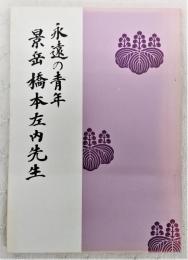 永遠の青年
景岳 橋本左内先生